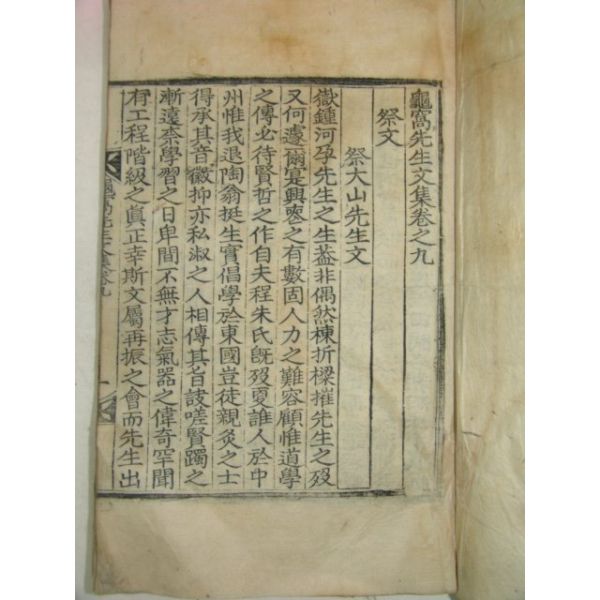 龜窩先生文集卷之九
祭文
祭大山先生文
嶽鍾河孕先生之生蓋非偶然棟折樑摧先生之歿
又何遽爾寔興喪之有數固人力之難容顧惟道學
之傳必待賢哲之作自夫程朱氏旣歿夏誰人於中
州惟我退陶翁挺生實倡學於東國豈徒親炙之士
得承其音徽抑亦私淑之人相傳其旨訣嗟賢躅之
漸遠柰學習之日卑間不無才志氣器之偉奇罕聞
有工程階級之眞正幸斯文屬再振之會而先生出